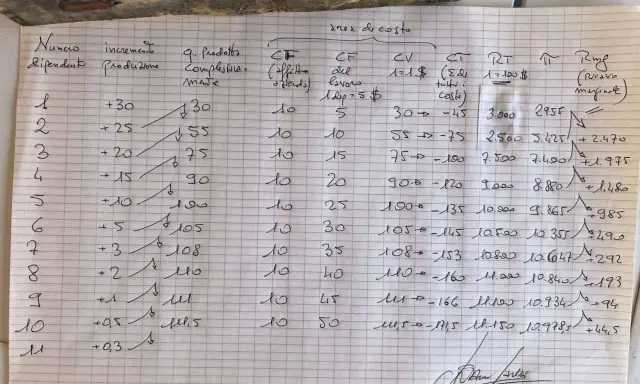 area di costo
Numero incremento q. prodotta CF CF CV CT RT π Rmg
dipendenti produzione complessiva- (affitto del 1=1.$ (Σ di 1=100$ (ricavo
mente azienda) lavoro tutti i marginale)
1 dip = 5 $ costi)
1 +30 30 10 5 30 -45 3.000 2955
2 +25 55 10 10 55 -75 2.500 5.425 +2.470
3 +20 75 10 15 75 -100 7.500 7.400 +1.975
4 +15 90 10 20 90 -120 9.000 8.880 +1.480
5 +10 100 10 25 100 -135 10.000 9.865 +985
6 +5 105 10 30 105 -145 10.500 10.355 +490
7 +3 108 10 35 108 -153 10.800 10.647 +292
8 +2 110 10 40 110 -160 11.000 10.840 +193
9 +1 111 10 45 111 -166 11.100 10.934 +94
10 +0,5 111,5 10 50 111,5 -171,5 11.150 10.978,5 +44,5
11 +0,3